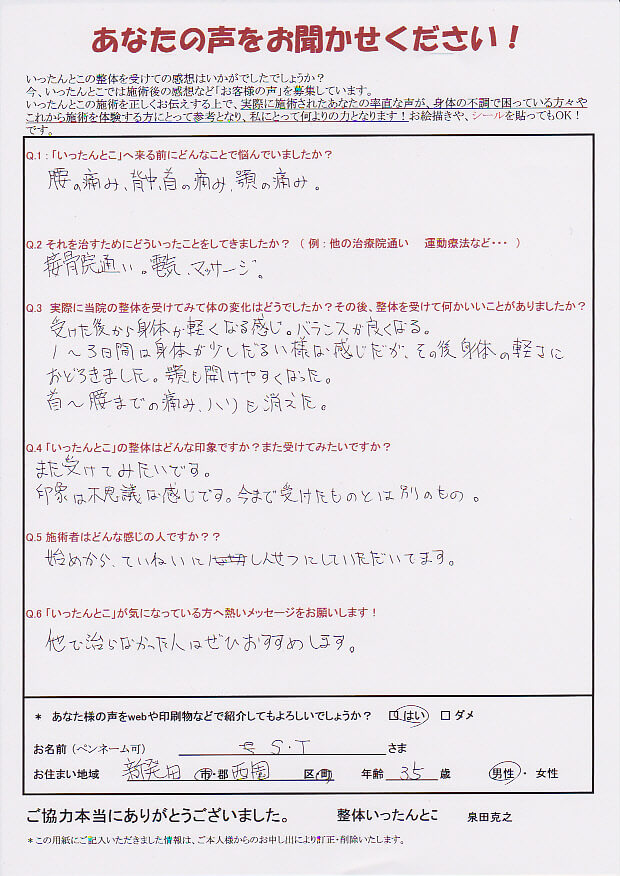 あなたの声をお聞かせください！
いったんとこの整体を受けての感想はいかがでしたでしょうか？
今、いったんとこでは施術後の感想など「お客様の声」を募集しています。
いったんとこの施術を正しくお伝えする上で、実際に施術されたあなたの率直な声が、身体の不調で困っている方々や
これから施術を体験する方にとって参考となり、私にとって何よりの力となります！お絵描きや、シールを貼ってもOK！
です。
Q.1：「いったんとこ」へ来る前にどんなことで悩んでいましたか？
腰の痛み、背中、首の痛み、顎の痛み。
Q.2 それを治すためにどういったことをしてきましたか？ （ 例：他の治療院通い 運動療法など・・・ ）
接骨院通い。電気、マッサージ。
Q.3 実際に当院の整体を受けてみて体の変化はどうでしたか？その後、整体を受けて何かいいことがありましたか？
受けた後から身体が軽くなる感じ。バランスが良くなる。
1～3日間は身体が少しだるい様な感じだが、その後身体の軽さに
おどろきました。顎も開けやすくなった。
首～腰までの痛み、ハリも消えた。
Q.4 「いったんとこ」の整体はどんな印象ですか？また受けてみたいですか？
また受けてみたいです。
印象は不思議な感じです。今まで受けたものとは別のもの。
Q.5 施術者はどんな感じの人ですか？？
始めから、ていねいにしんせつにしていただいてます。
Q.6 「いったんとこ」が気になっている方へ熱いメッセージをお願いします！
他で治らなかった人はぜひおすすめします。
＊ あなた様の声をwebや印刷物などで紹介してもよろしいでしょうか？ □ はい □ ダメ
お名前（ペンネーム可） S・T さま
お住まい地域 新発田 市・郡 西園 区・町 年齢 35 歳 男性・ 女性
ご協力本当にありがとうございました。 整体いったんとこ 泉田克之
＊この用紙にご記入いただきました情報は、ご本人様からのお申し出により訂正・削除いたします。